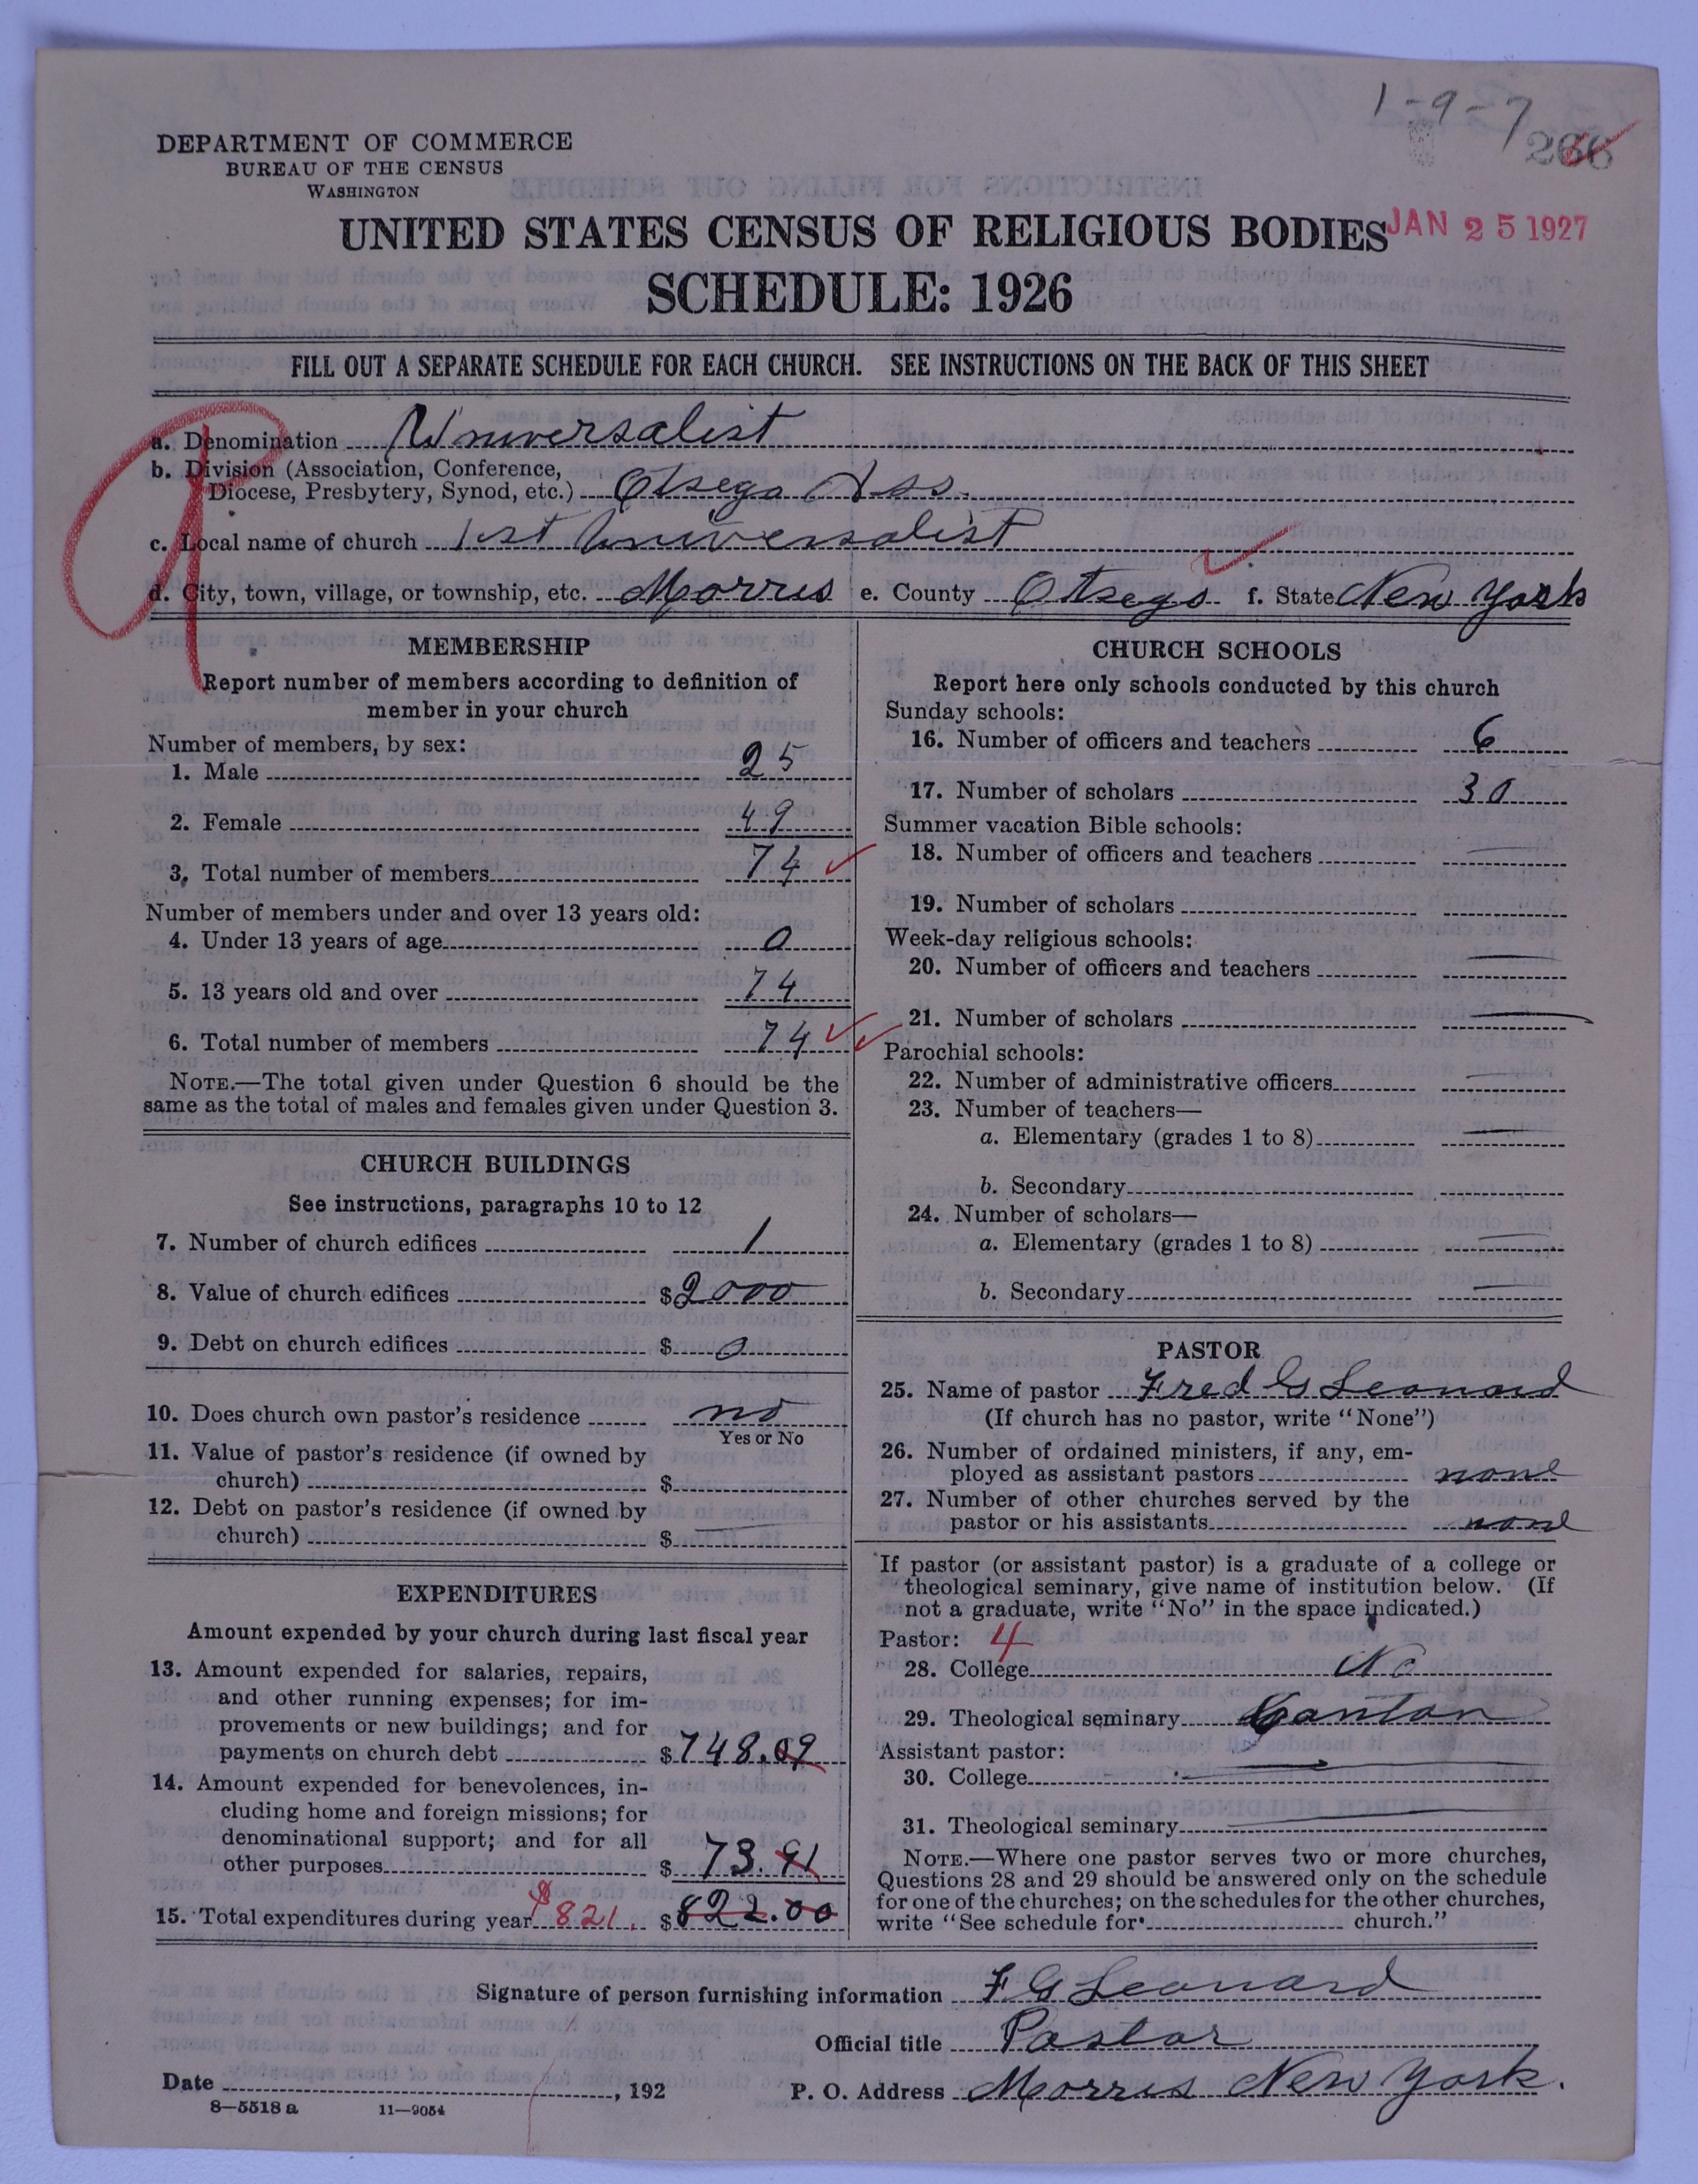 1-9-7
266
DEPARTMENT OF COMMERCE
BUREAU OF THE CENSUS
WASHINGTON
UNITED STATES CENSUS OF RELIGIOUS BODIES
JAN 25 1927
SCHEDULE: 1926
FILL OUT A SEPARATE SCHEDULE FOR EACH CHURCH. SEE INSTRUCTIONS ON THE BACK OF THIS SHEET
a. Denomination Universalist
b. Division (Association, Conference,
Diocese, Presbytery, Synod, etc.) Otsego Ass.
c. Local name of church 1st Universalist
d. City, town, village, or township, etc. Morris e. County Otsego f. State New York
MEMBERSHIP
Report number of members according to definition of
member in your church
Number of members, by sex:
1. Male 25
2. Female 49
3. Total number of members 74
Number of members under and over 13 years old:
4. Under 13 years of age 0
5. 13 years old and over 74
6. Total number of members 74
NOTE.—The total given under Question 6 should be the
same as the total of males and females given under Question 3.
CHURCH BUILDINGS
See instructions, paragraphs 10 to 12
7. Number of church edifices 1
8. Value of church edifices $2000
9. Debt on church edifices $ 0
10. Does church own pastor's residence no
Yes or No
11. Value of pastor's residence (if owned by
church) $
12. Debt on pastor's residence (if owned by
church) $
EXPENDITURES
Amount expended by your church during last fiscal year
13. Amount expended for salaries, repairs,
and other running expenses; for im-
provements or new buildings; and for
payments on church debt $748.09
14. Amount expended for benevolences, in-
cluding home and foreign missions; for
denominational support; and for all
other purposes $ 73.91
15. Total expenditures during year $821. $822.00
CHURCH SCHOOLS
Report here only schools conducted by this church
Sunday schools:
16. Number of officers and teachers 6
17. Number of scholars 30
Summer vacation Bible schools:
18. Number of officers and teachers
19. Number of scholars
Week-day religious schools:
20. Number of officers and teachers
21. Number of scholars
Parochial schools:
22. Number of administrative officers
23. Number of teachers—
a. Elementary (grades 1 to 8)
b. Secondary
24. Number of scholars—
a. Elementary (grades 1 to 8)
b. Secondary
PASTOR
25. Name of pastor Fred G Leonard
(If church has no pastor, write "None")
26. Number of ordained ministers, if any, em-
ployed as assistant pastors none
27. Number of other churches served by the
pastor or his assistants none
If pastor (or assistant pastor) is a graduate of a college or
theological seminary, give name of institution below. (If
not a graduate, write "No" in the space indicated.)
Pastor: 4
28. College No
29. Theological seminary Canton
Assistant pastor:
30. College
31. Theological seminary
NOTE.—Where one pastor serves two or more churches,
Questions 28 and 29 should be answered only on the schedule
for one of the churches; on the schedules for the other churches,
write "See schedule for church."
Signature of person furnishing information F G Leonard
Official title Pastor
Date , 192 P. O. Address Morris New York.
8—5518 a 11—9054